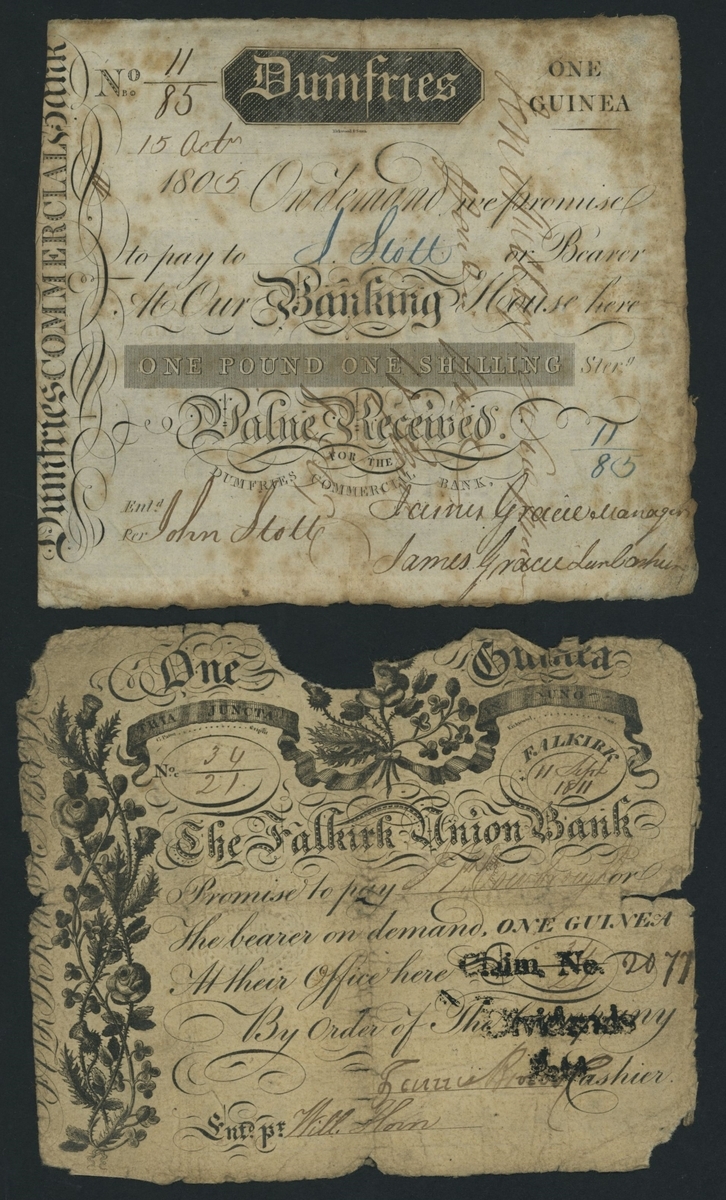 Dumfries COMMERCIAL Bank
No 11/85
Dumfries
ONE GUINEA
15 Octr
1805 On demand we promise
to pay to J. Stott or Bearer
At Our Banking House here
ONE POUND ONE SHILLING Ster.g
Value Received.
11/85
FOR THE
DUMFRIES COMMERCIAL BANK,
Ent.d
Per John Stott
James Gracie Manager
James Gracie
One Guinea
TRIA JUNCTA IN UNO
No. 34/21
FALKIRK
11 Sept
1811
The Falkirk Union Bank
Promise to pay or
The bearer on demand, ONE GUINEA
At their Office here Claim No. 2077
By Order of The Company
Dividends
Paid
Cashier.
Ent.d pr. Will. Horn